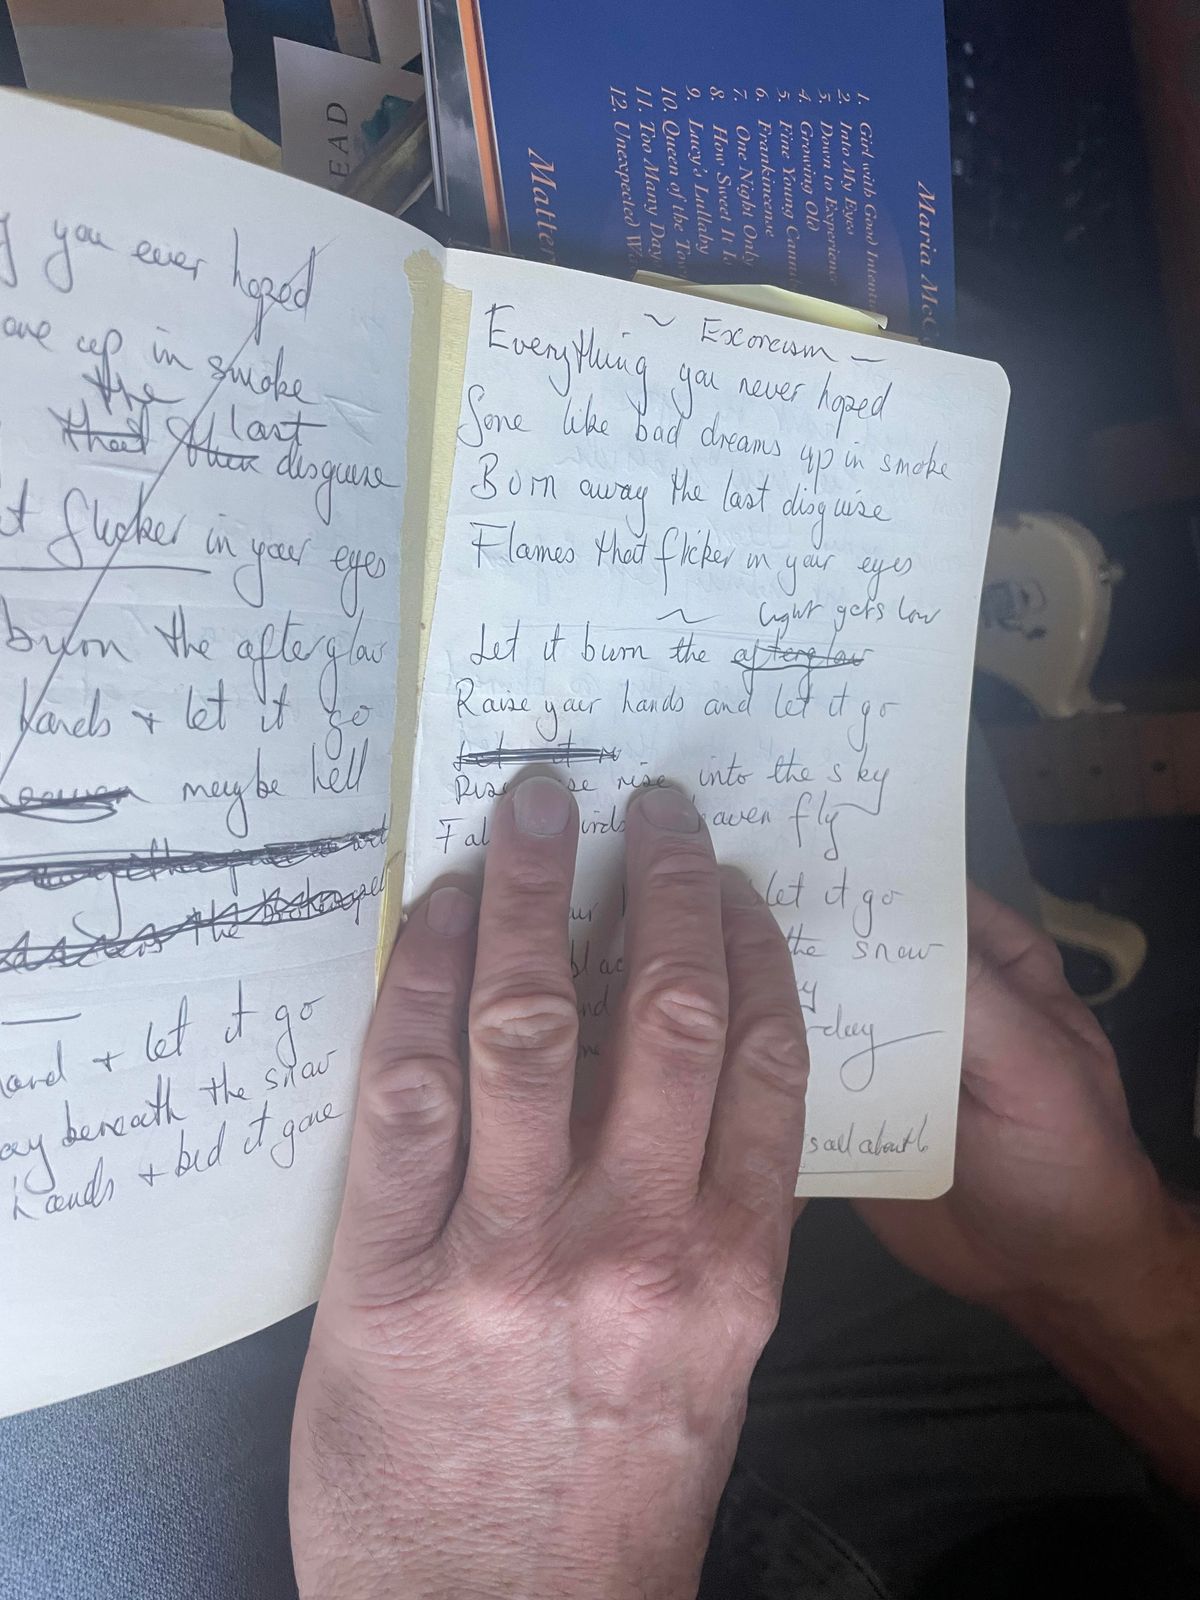 EAD
Maria McC
1. Girl with Good Intenti
2. Into My Eyes
3. Down to Experience
4. Growing Old
5. Fine Young Canni
6. Frankincense
7. One Night Only
8. How Sweet It I
9. Lucy's Lullaby
10. Queen of the To
11. Too Many Day
12. Unexpected W
Matter
g you ever hoped
one up in smoke
the last
that disguise
t flicker in your eyes
burn the afterglow
hands + let it go
heaven maybe hell
the
hand + let it go
ay beneath the snow
hands + bid it gone
~ Exorcism —
Everything you never hoped
Gone like bad dreams up in smoke
Burn away the last disguise
Flames that flicker in your eyes
~
light gets low
Let it burn the afterglow
Raise your hands and let it go
Let it
Rise se rise into the sky
Fal irds eaven fly
ur let it go
blac the snow
nd y
ne rday
s all about 6